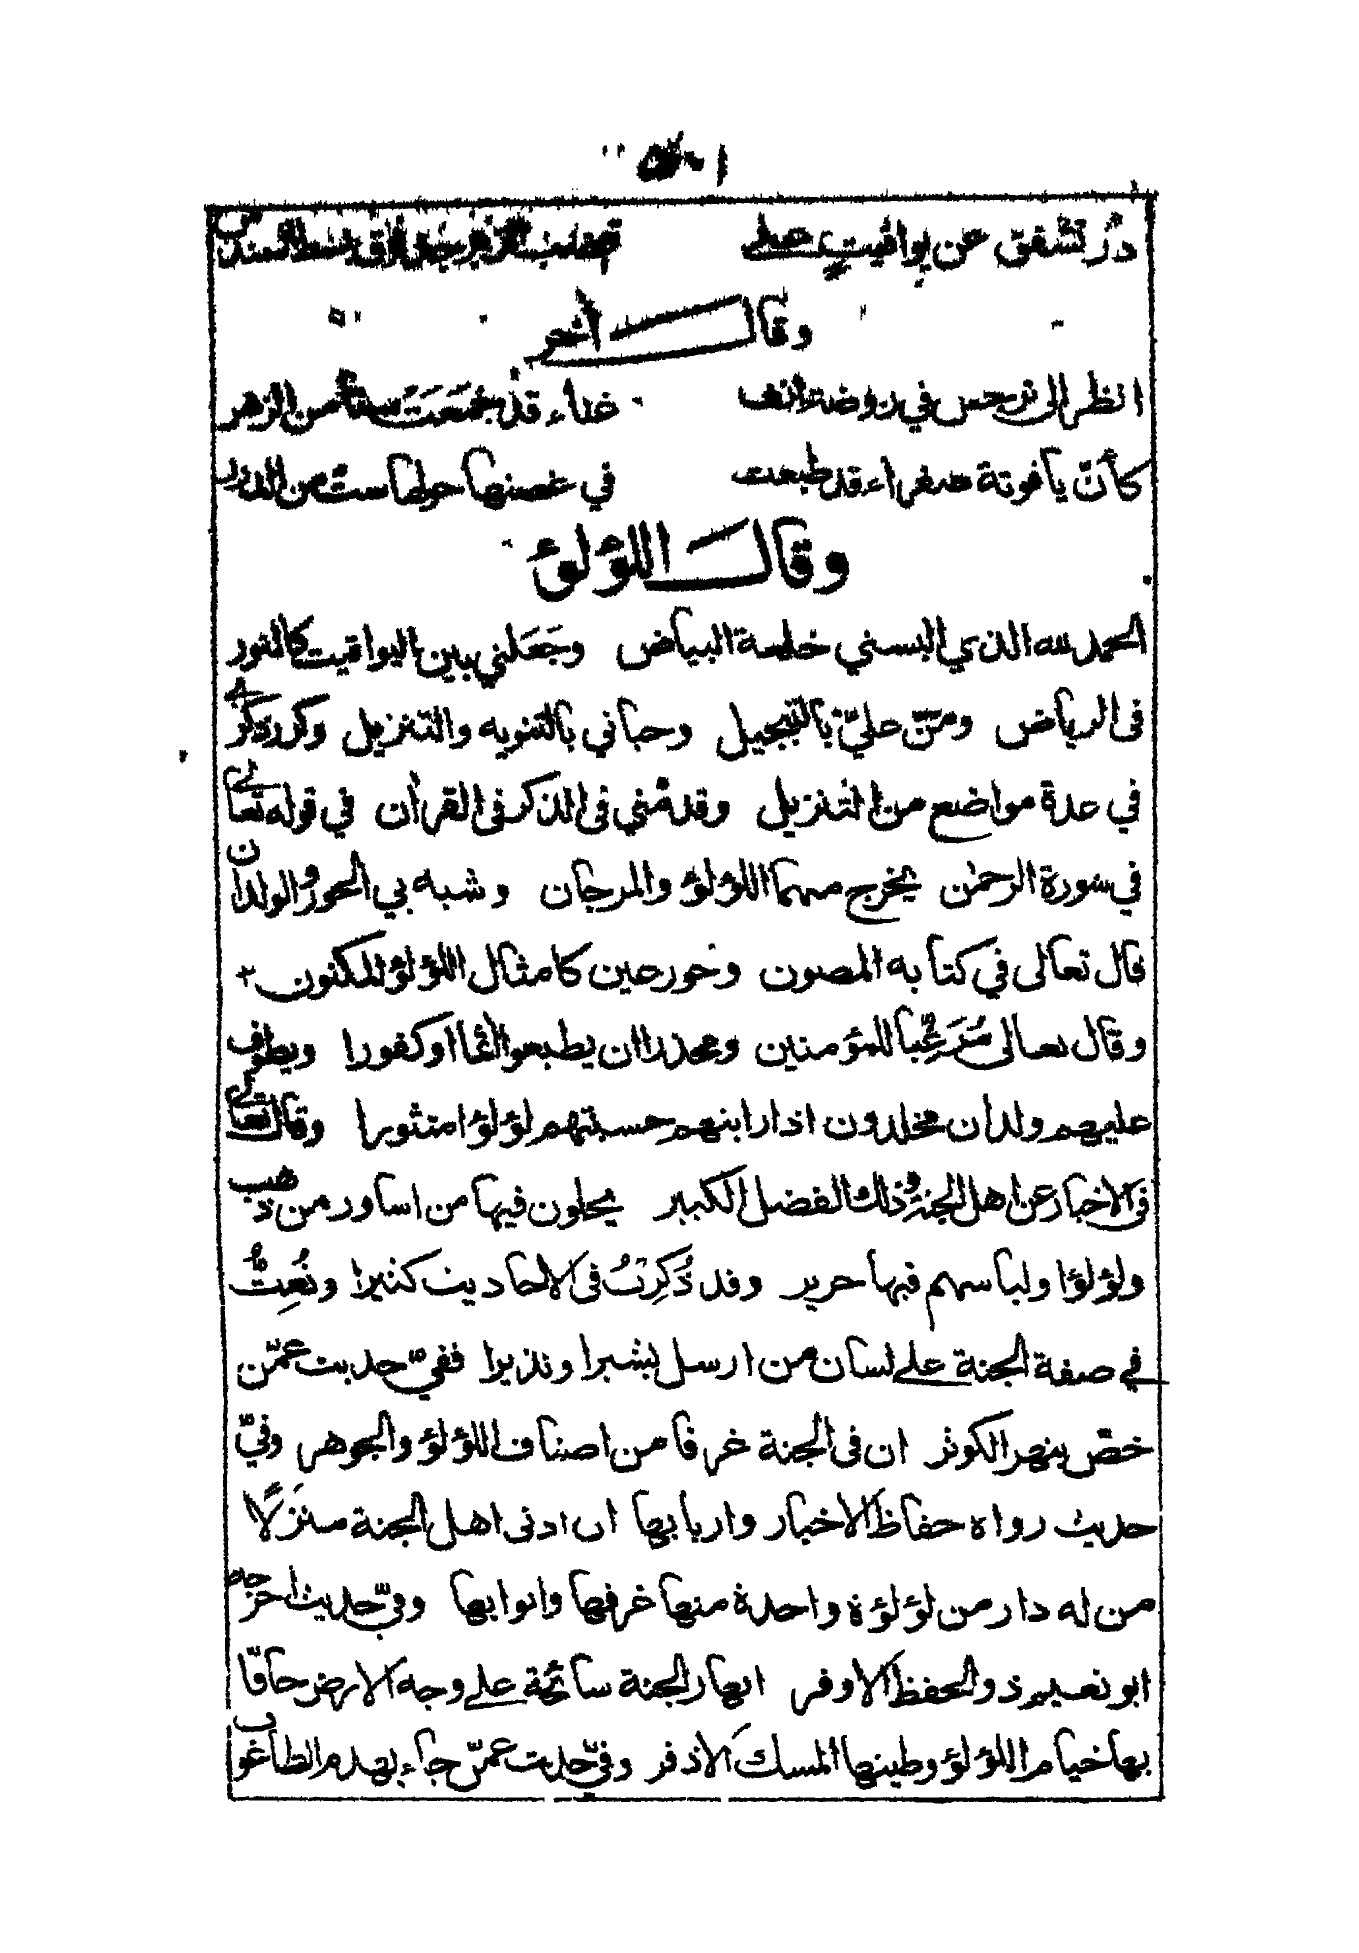 درّ تشقق عن يواقيت على
وقال آخر
انظر الى نرجس في روضة انف غناء قد جمعت شتا من الزهر
كأنّ ياقوتة صفراء قد طبعت في غصنها حولها ست من الدرر
وقال اللؤلؤ
الحمد لله الذي البسني خلعة البياض وجعلني بين اليواقيت كالنور
فى الرياض ومنّ عليّ بالتبجيل وحباني بالتنويه والتنزيل وكرر ذكري
في عدة مواضع من التنزيل وقدمني فى الذكر فى القرآن في قوله تعالى
في سورة الرحمن يخرج منهما اللؤلؤ والمرجان وشبه بي الحور والولدان
قال تعالى في كتابه المصون وحور عين كامثال اللؤلؤ المكنون
وقال تعالى مُرَغِّبا للمؤمنين ومحذرا ان يطيعوا آثما او كفورا ويطوف
عليهم ولدان مخلدون اذا رايتهم حسبتهم لؤلؤا منثورا وقال تعالى
فى الاخبار عن اهل الجنة وذلك الفضل الكبير يحلون فيها من اساور من ذهب
ولؤلؤا ولباسهم فيها حرير وقد ذُكِرتُ فى الاحاديث كثيرا ونُعِتُّ
في صفة الجنة على لسان من ارسل بشيرا ونذيرا ففي حديث عمّن
خصّ بنهر الكوثر ان فى الجنة غرفا من اصناف اللؤلؤ والجوهر وفيّ
حديث رواه حفاظ الاخبار واربابها ان ادنى اهل الجنة منزلًا
من له دار من لؤلؤة واحدة منها غرفها وابوابها وفي حديث اخرجه
ابو نعيم ذو الحفظ الاوفر انهار الجنة سائحة على وجه الارض حافّا
بها خيام اللؤلؤ وطينها المسك الاذفر وفي حديث عمّن جاء بهدم الطاغوت